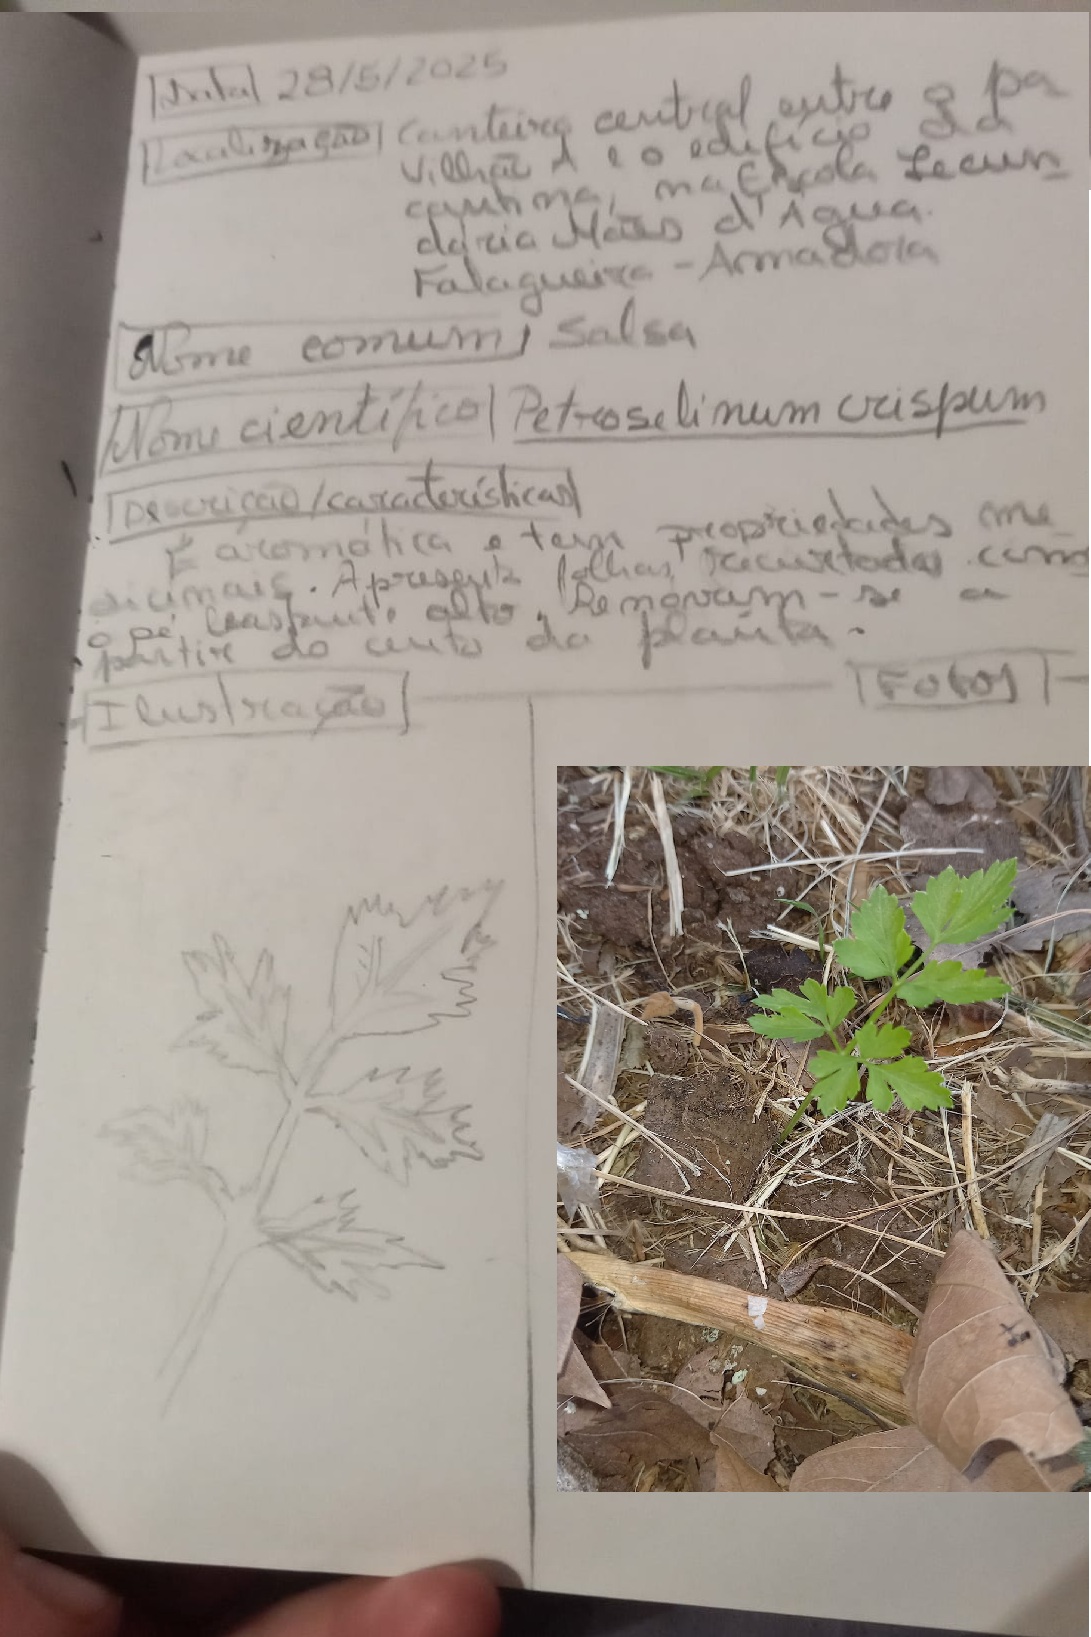 Data 28/5/2025
Localização Canteiro central entre o pa
vilhão A e o edifício da
cantina, na Escola Secun
daria Mães d'Água.
Falagueira - Armadora
Nome comum Salsa
Nome científico Petroselinum crispum
Descrição/características
É aromática e tem propriedades me
dicinais. Apresenta folhas recortadas com
o pé bastante alto. Removam-se a
partir do cento da planta.
Ilustração Fotos